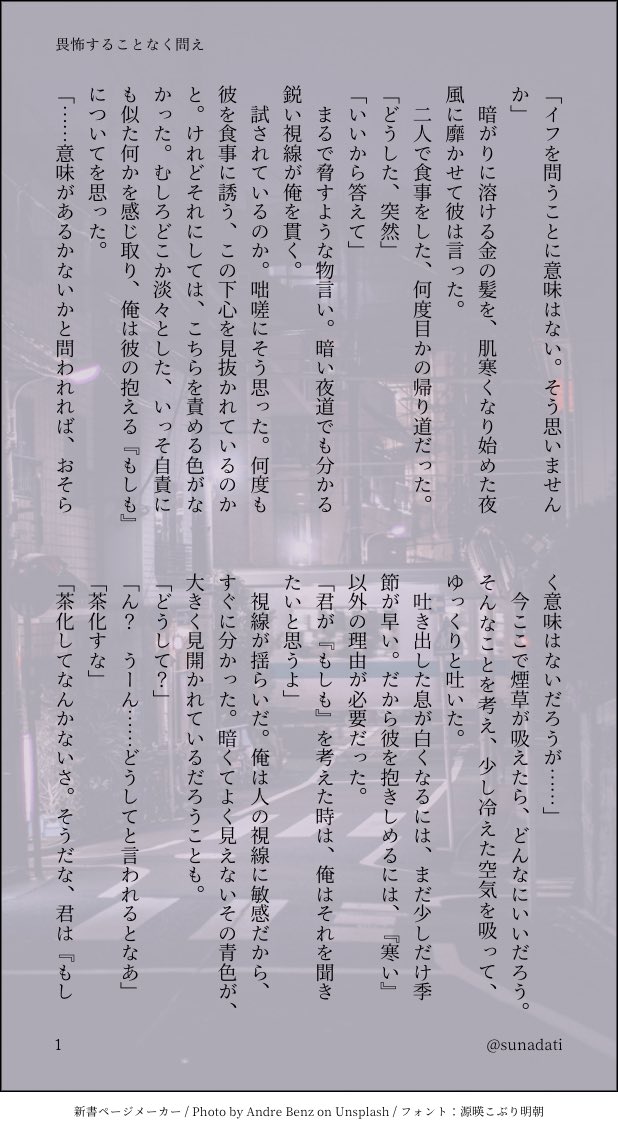 畏怖することなく問え
「イフを問うことに意味はない。そう思いません
か」
　暗がりに溶ける金の髪を、肌寒くなり始めた夜
風に靡かせて彼は言った。
　二人で食事をした、何度目かの帰り道だった。
「どうした、突然」
「いいから答えて」
　まるで脅すような物言い。暗い夜道でも分かる
鋭い視線が俺を貫く。
　試されているのか。咄嗟にそう思った。何度も
彼を食事に誘う、この下心を見抜かれているのか
と。けれどそれにしては、こちらを責める色がな
かった。むしろどこか淡々とした、いっそ自責に
も似た何かを感じ取り、俺は彼の抱える『もしも』
についてを思った。
「……意味があるかないかと問われれば、おそら
く意味はないだろうが……」
　今ここで煙草が吸えたら、どんなにいいだろう。
そんなことを考え、少し冷えた空気を吸って、
ゆっくりと吐いた。
　吐き出した息が白くなるには、まだ少しだけ季
節が早い。だから彼を抱きしめるには、『寒い』
以外の理由が必要だった。
「君が『もしも』を考えた時は、俺はそれを聞き
たいと思うよ」
　視線が揺らいだ。俺は人の視線に敏感だから、
すぐに分かった。暗くてよく見えないその青色が、
大きく見開かれているだろうことも。
「どうして？」
「ん？　うーん……どうしてと言われるとなあ」
「茶化すな」
「茶化してなんかないさ。そうだな、君は『もし
1
@sunadati
新書ページメーカー / Photo by Andre Benz on Unsplash / フォント：源暎こぶり明朝